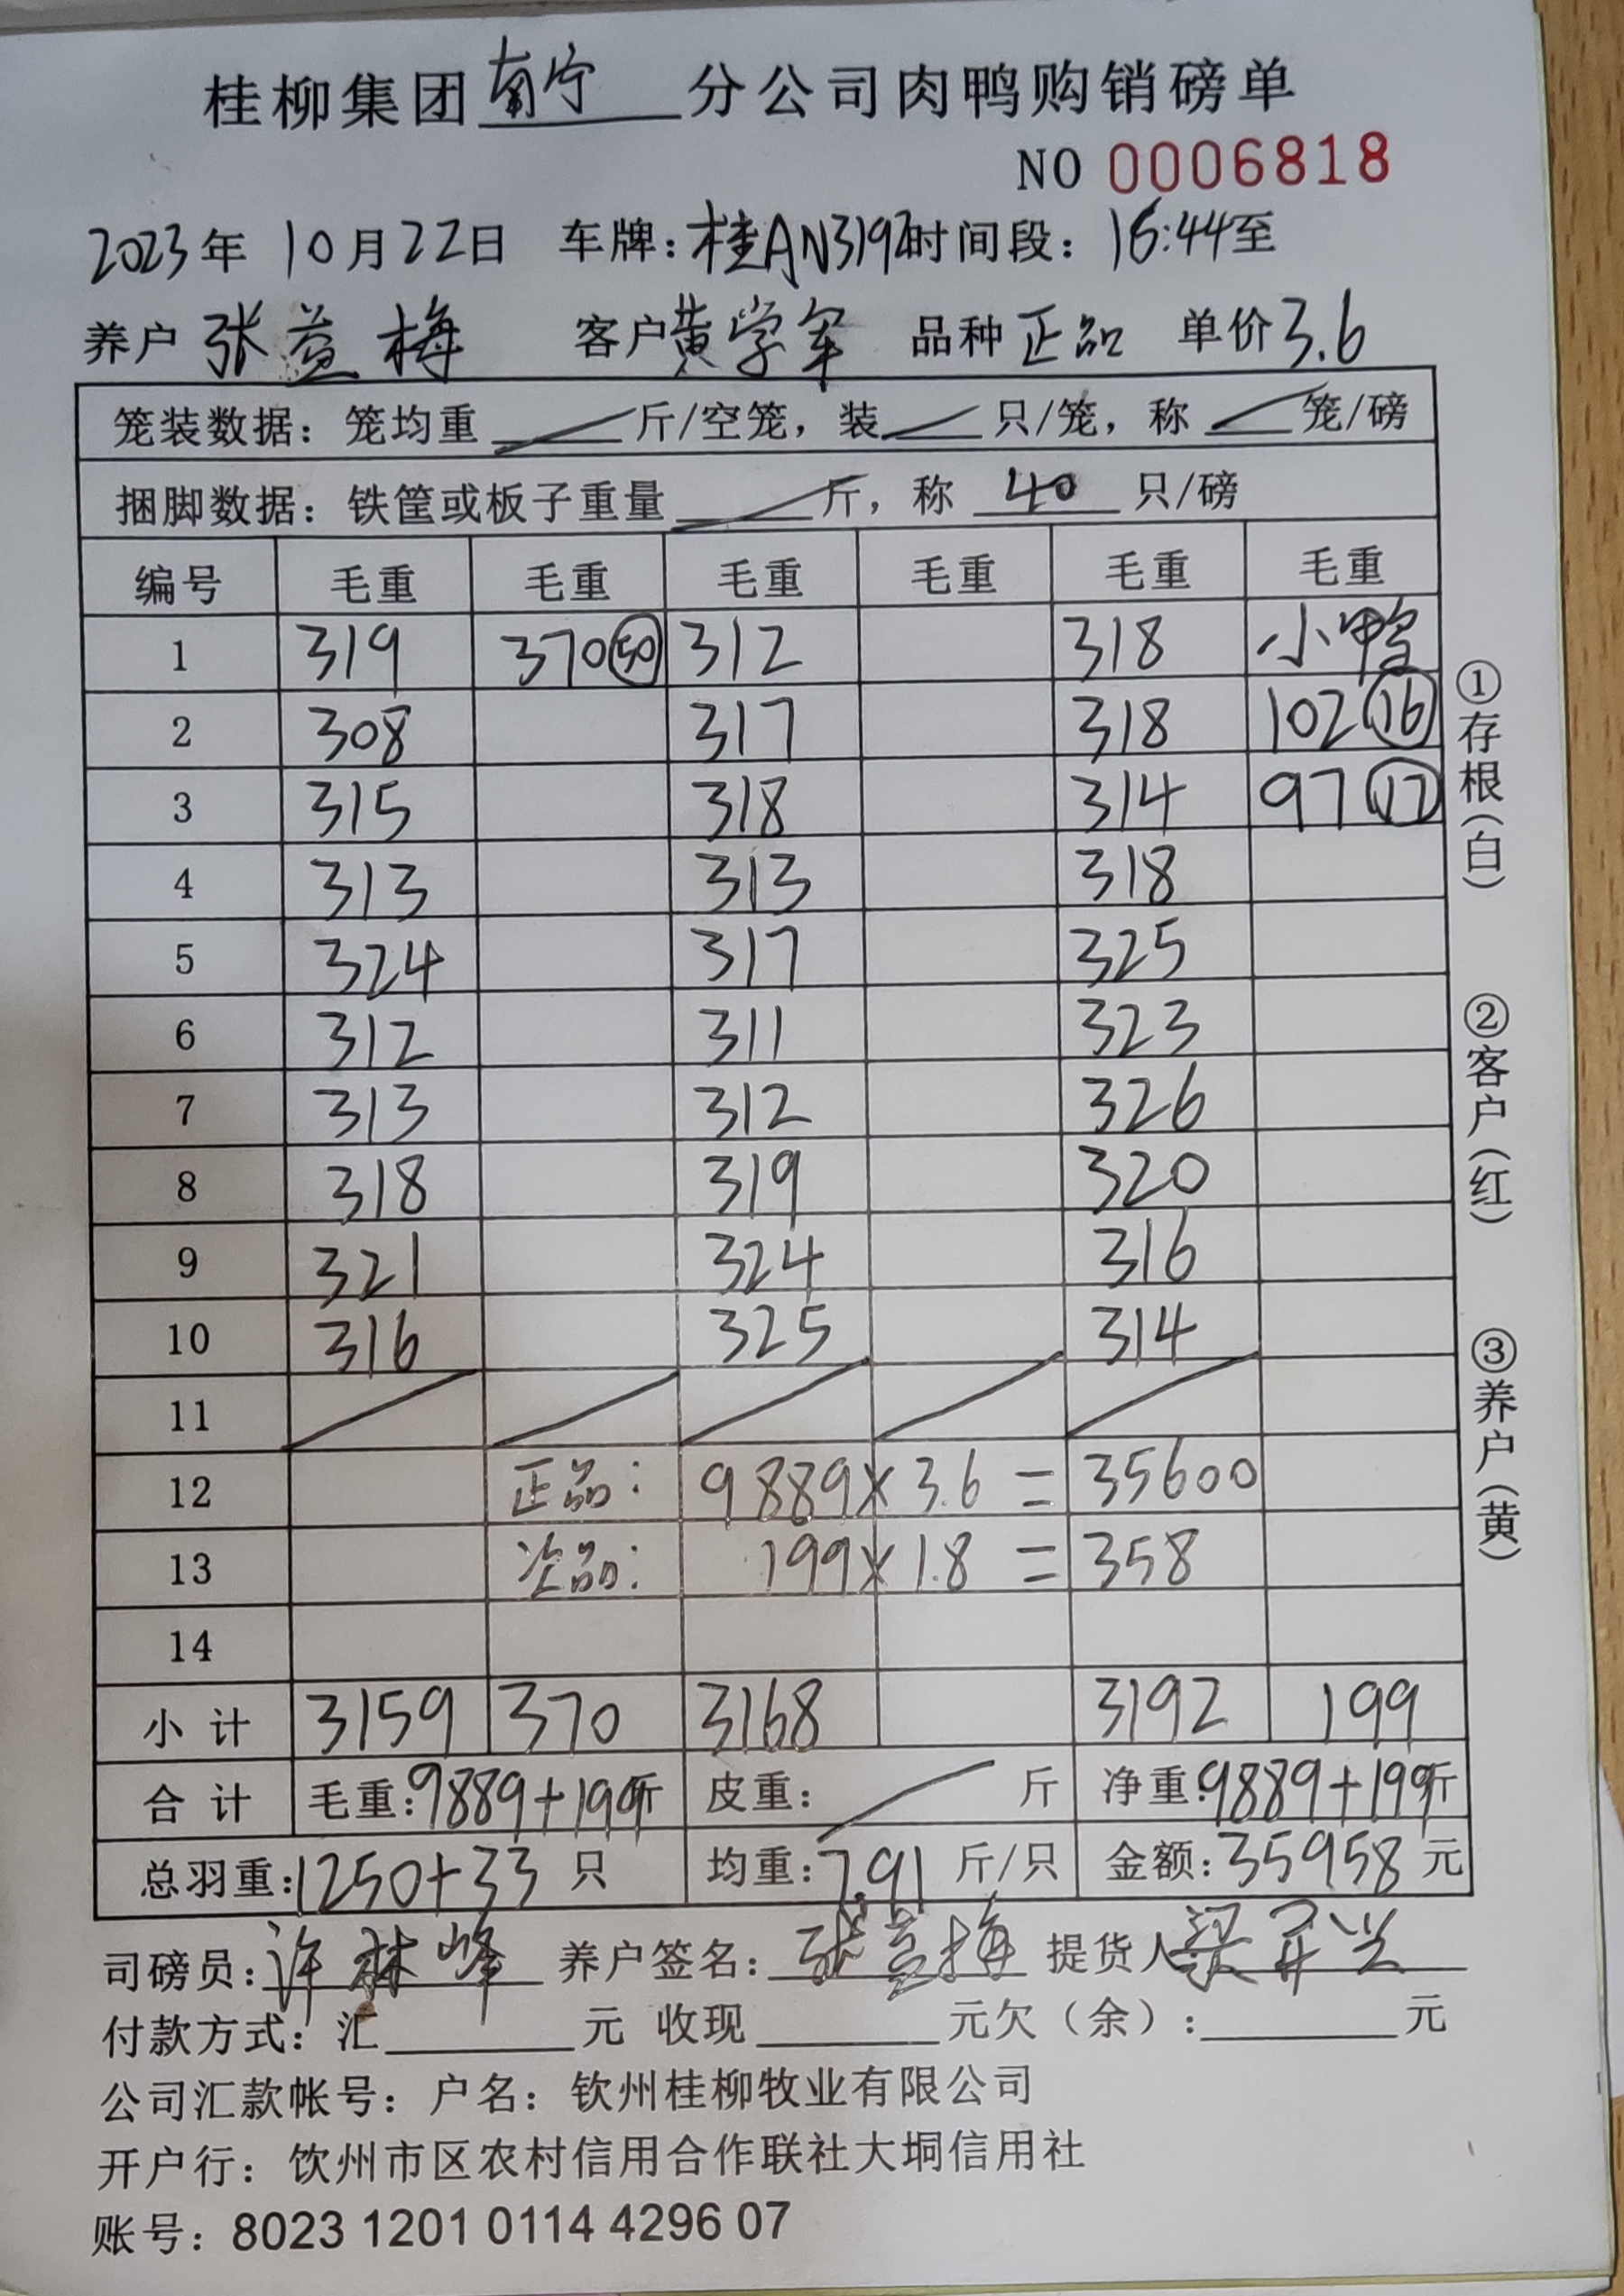 桂柳集团南宁分公司肉鸭购销磅单
NO 0006818
2023年 10月22日 车牌:桂AN3192时间段: 16:44至
养户 张益梅 客户黄学军 品种 正品 单价3.6
笼装数据: 笼均重 / 斤/空笼, 装 / 只/笼, 称 / 笼/磅
捆脚数据: 铁筐或板子重量 / 斤, 称 40 只/磅
编号 毛重 毛重 毛重 毛重 毛重 毛重
1 319 370 (50) 312 318 小鸭
2 308 317 318 102 (16)
3 315 318 314 97 (17)
4 313 313 318
5 324 317 325
6 312 311 323
7 313 312 326
8 318 319 320
9 321 324 316
10 316 325 314
11 / / / / /
12 正品: 9889×3.6 = 35600
13 次品: 199×1.8 = 358
14
小计 3159 370 3168 3192 199
合计 毛重:9889+199斤 皮重: / 斤 净重:9889+199斤
总羽重:1250+33 只 均重:7.91 斤/只 金额:35958元
司磅员:许林峰 养户签名:张益梅 提货人:梁
付款方式: 汇______元 收现______元欠(余):______元
公司汇款帐号: 户名: 钦州桂柳牧业有限公司
开户行: 饮州市区农村信用合作联社大垌信用社
账号: 8023 1201 0114 4296 07
①存根(白)
②客户(红)
③养户(黄)